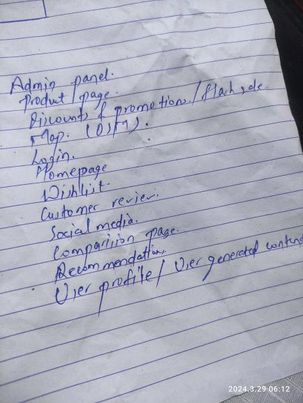 Admin panel.
Product page.
Discounts & promotions / flash sale
Map. (OSM).
Login.
Homepage
Wishlist.
Customer review.
Social media.
Comparision page.
Recommendation
User profile / User generated content
2024.3.29 06:12